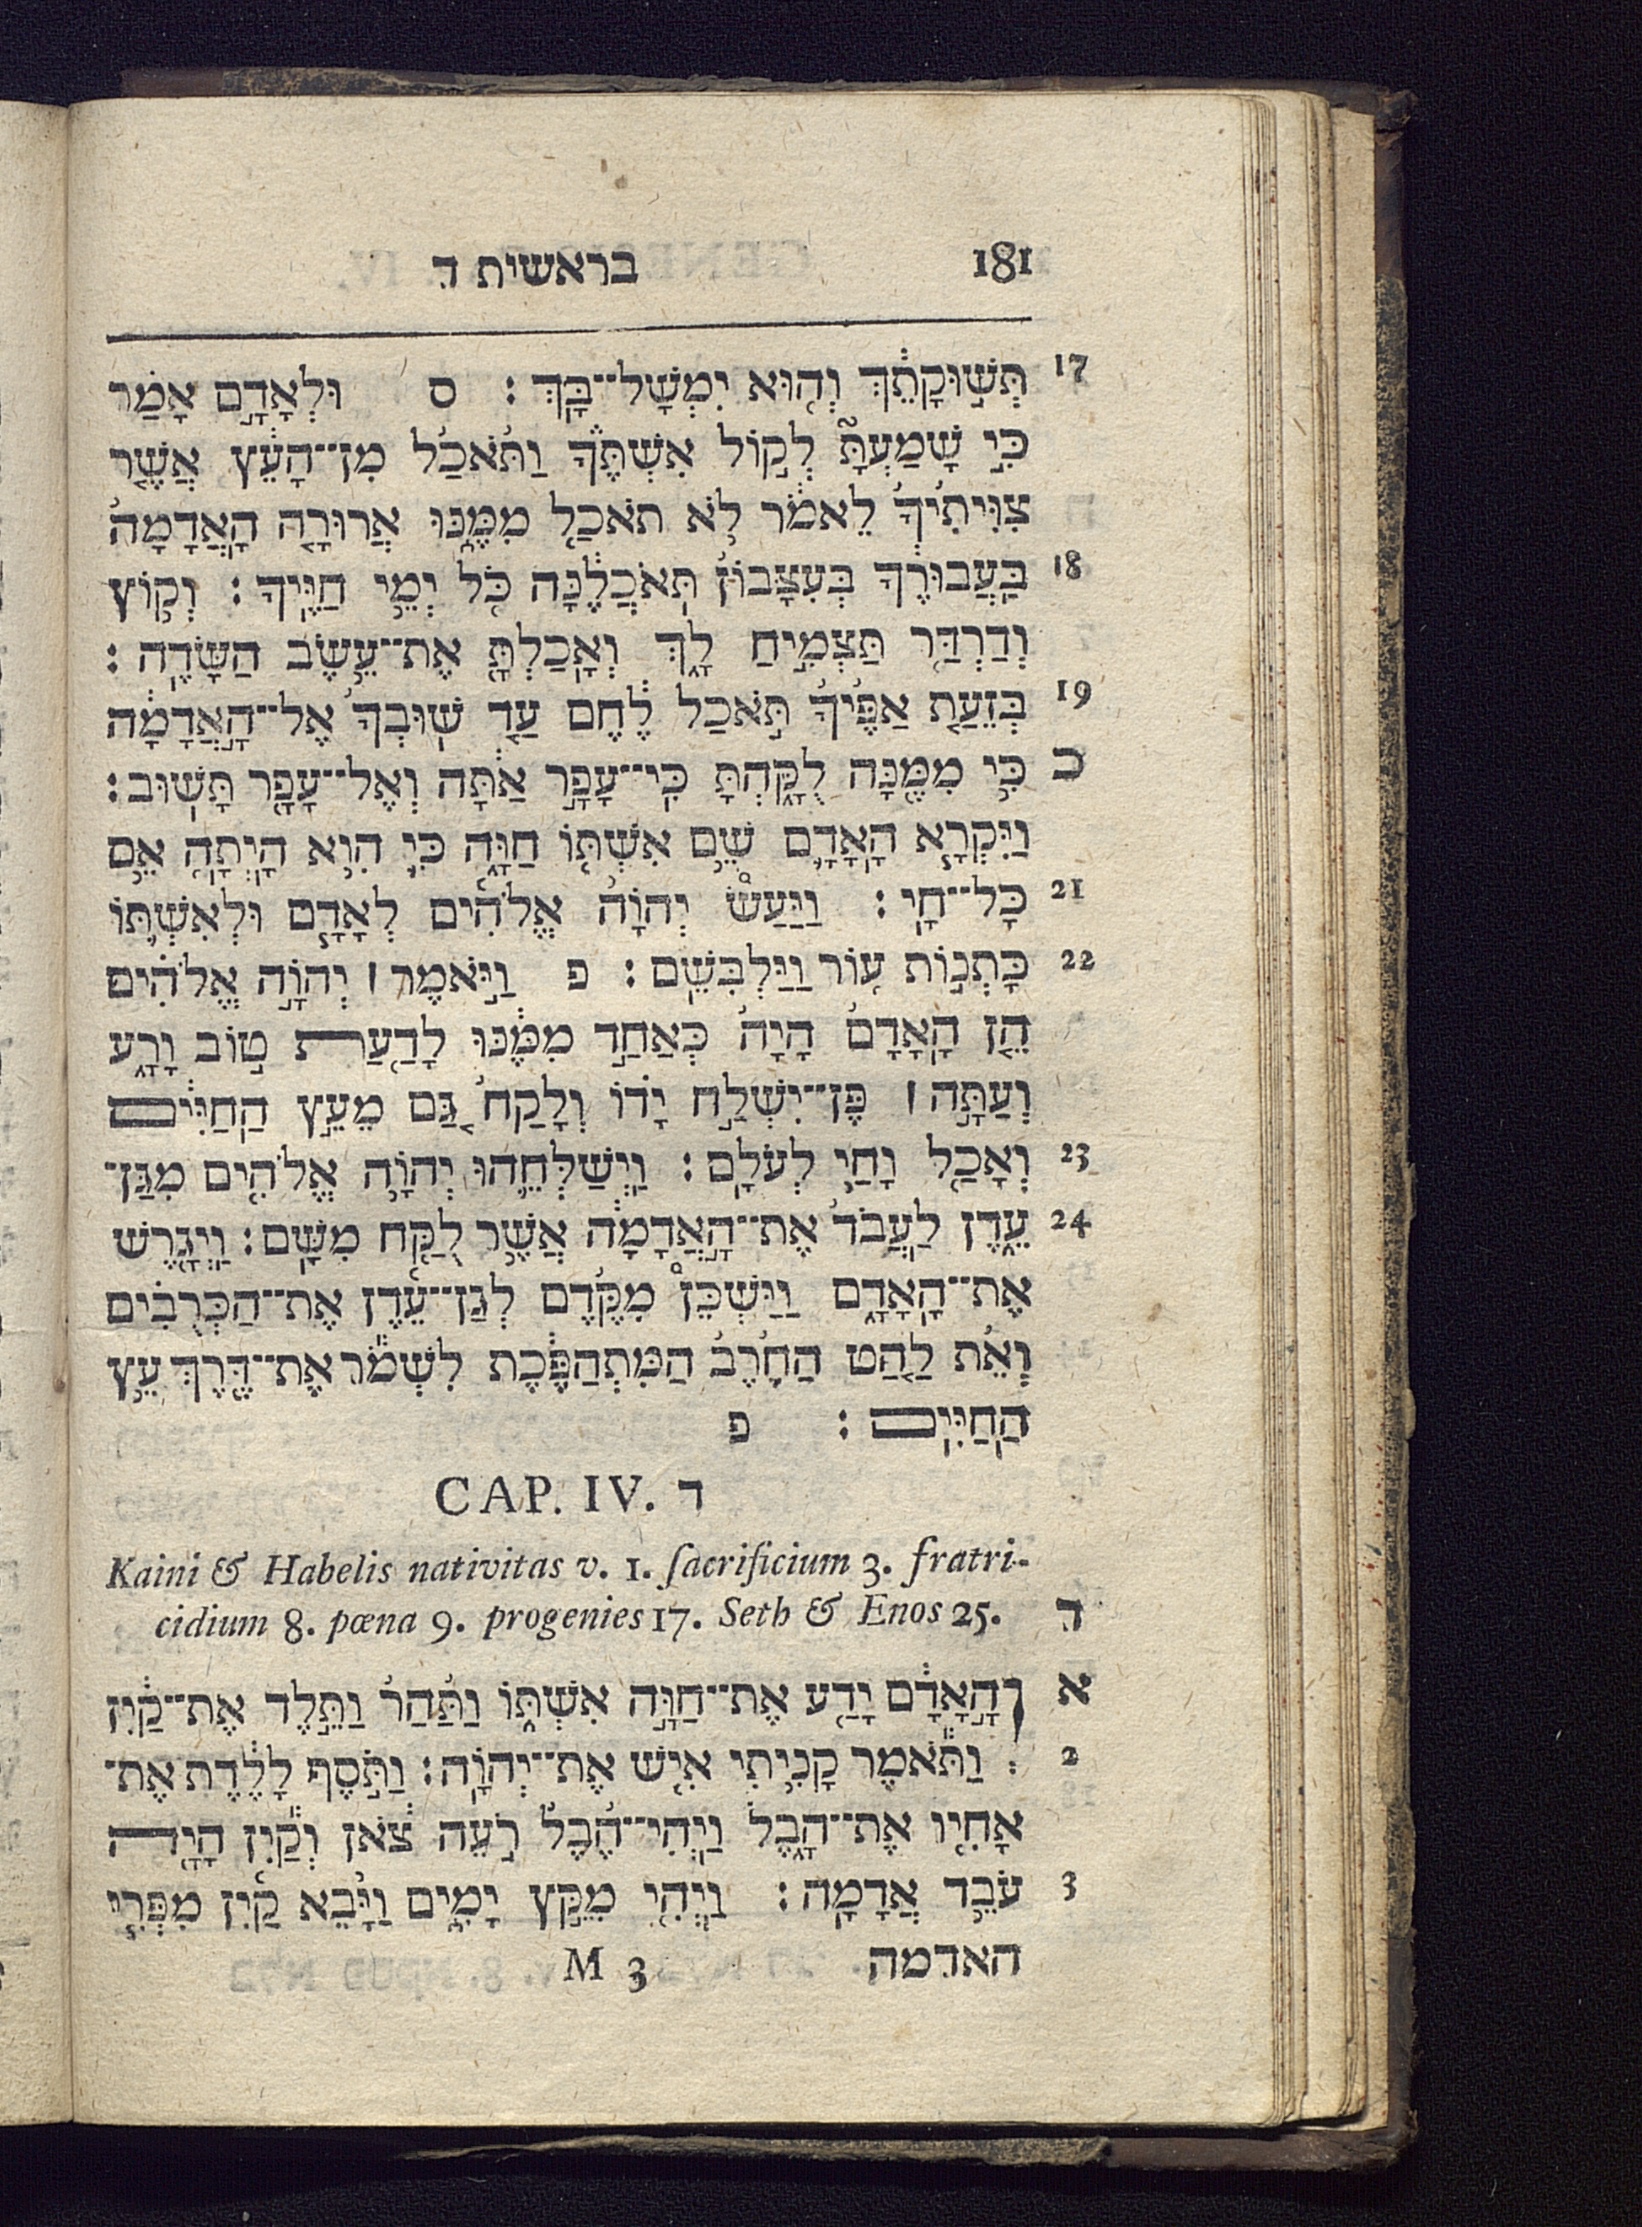 181 בראשית ד
17 תְּשׁ֣וּקָתֵ֔ךְ וְה֖וּא יִמְשָׁל־בָּֽךְ׃ ס וּלְאָדָ֣ם אָמַ֗ר
כִּֽי שָׁמַעְתָּ֮ לְק֣וֹל אִשְׁתֶּ֒ךָ֒ וַתֹּ֙אכַל֙ מִן־הָעֵ֔ץ אֲשֶׁ֤ר
צִוִּיתִ֙יךָ֙ לֵאמֹ֔ר לֹ֥א תֹאכַ֖ל מִמֶּ֑נּוּ אֲרוּרָ֤ה הָֽאֲדָמָה֙
18 בַּֽעֲבוּרֶ֔ךָ בְּעִצָּבוֹן֙ תֹּֽאכֲלֶ֔נָּה כֹּ֖ל יְמֵ֥י חַיֶּֽיךָ׃ וְק֥וֹץ
וְדַרְדַּ֖ר תַּצְמִ֣יחַ לָ֑ךְ וְאָֽכַלְתָּ֖ אֶת־עֵ֥שֶׂב הַשָּׂדֶֽה׃
19 בְּזֵעַ֤ת אַפֶּ֙יךָ֙ תֹּ֣אכַל לֶ֔חֶם עַ֤ד שֽׁוּבְךָ֙ אֶל־הָ֣אֲדָמָ֔ה
כ כִּ֥י מִמֶּ֖נָּה לֻקָּ֑הְתָּ כִּֽי־עָפָ֣ר אַ֔תָּה וְאֶל־עָפָ֖ר תָּשֽׁוּב׃
וַיִּקְרָ֧א הָֽאָדָ֛ם שֵׁ֥ם אִשְׁתּ֖וֹ חַוָּ֑ה כִּ֛י הִ֥וא הָֽיְתָ֖ה אֵ֥ם
21 כָּל־חָֽי׃ וַיַּעַשׂ֩ יְהוָ֨ה אֱלֹהִ֜ים לְאָדָ֧ם וּלְאִשְׁתּ֛וֹ
22 כָּתְנ֥וֹת ע֖וֹר וַיַּלְבִּשֵֽׁם׃ פ וַיֹּ֣אמֶר ׀ יְהוָ֣ה אֱלֹהִ֗ים
הֵ֤ן הָֽאָדָם֙ הָיָה֙ כְּאַחַ֣ד מִמֶּ֔נּוּ לָדַ֖עַת ט֣וֹב וָרָ֑ע
וְעַתָּ֣ה ׀ פֶּן־יִשְׁלַ֣ח יָד֗וֹ וְלָקַח֙ גַּ֚ם מֵעֵ֣ץ הַֽחַיִּ֔ים
23 וְאָכַ֖ל וָחַ֥י לְעֹלָֽם׃ וַֽיְשַׁלְּחֵ֛הוּ יְהוָ֥ה אֱלֹהִ֖ים מִגַּן־
24 עֵ֑דֶן לַֽעֲבֹד֙ אֶת־הָ֣אֲדָמָ֔ה אֲשֶׁ֥ר לֻקַּ֖ח מִשָּֽׁם׃ וַיְגָ֖רֶשׁ
אֶת־הָֽאָדָ֑ם וַיַּשְׁכֵּן֩ מִקֶּ֨דֶם לְגַן־עֵ֜דֶן אֶת־הַכְּרֻבִ֗ים
וְאֵ֨ת לַ֤הַט הַחֶ֙רֶב֙ הַמִּתְהַפֶּ֔כֶת לִשְׁמֹ֕ר אֶת־דֶּ֖רֶךְ עֵ֥ץ
הַֽחַיִּֽים׃ פ
CAP. IV. ד
Kaini & Habelis nativitas v. 1. sacrificium 3. fratri-
ד cidium 8. pœna 9. progenies 17. Seth & Enos 25.
א וְהָ֣אָדָ֔ם יָדַ֖ע אֶת־חַוָּ֣ה אִשְׁתּ֑וֹ וַתַּ֙הַר֙ וַתֵּ֣לֶד אֶת־קַ֔יִן
2 : וַתֹּ֕אמֶר קָנִ֥יתִי אִ֖ישׁ אֶת־יְהוָֽה׃ וַתֹּ֣סֶף לָלֶ֔דֶת אֶת־
אָחִ֖יו אֶת־הָ֑בֶל וַֽיְהִי־הֶ֙בֶל֙ רֹ֣עֵה צֹ֔אן וְקַ֕יִן הָיָ֖ה
3 עֹבֵ֥ד אֲדָמָֽה׃ וַֽיְהִ֖י מִקֵּ֣ץ יָמִ֑ים וַיָּבֵ֨א קַ֜יִן מִפְּרִ֧י
האדמה M 3